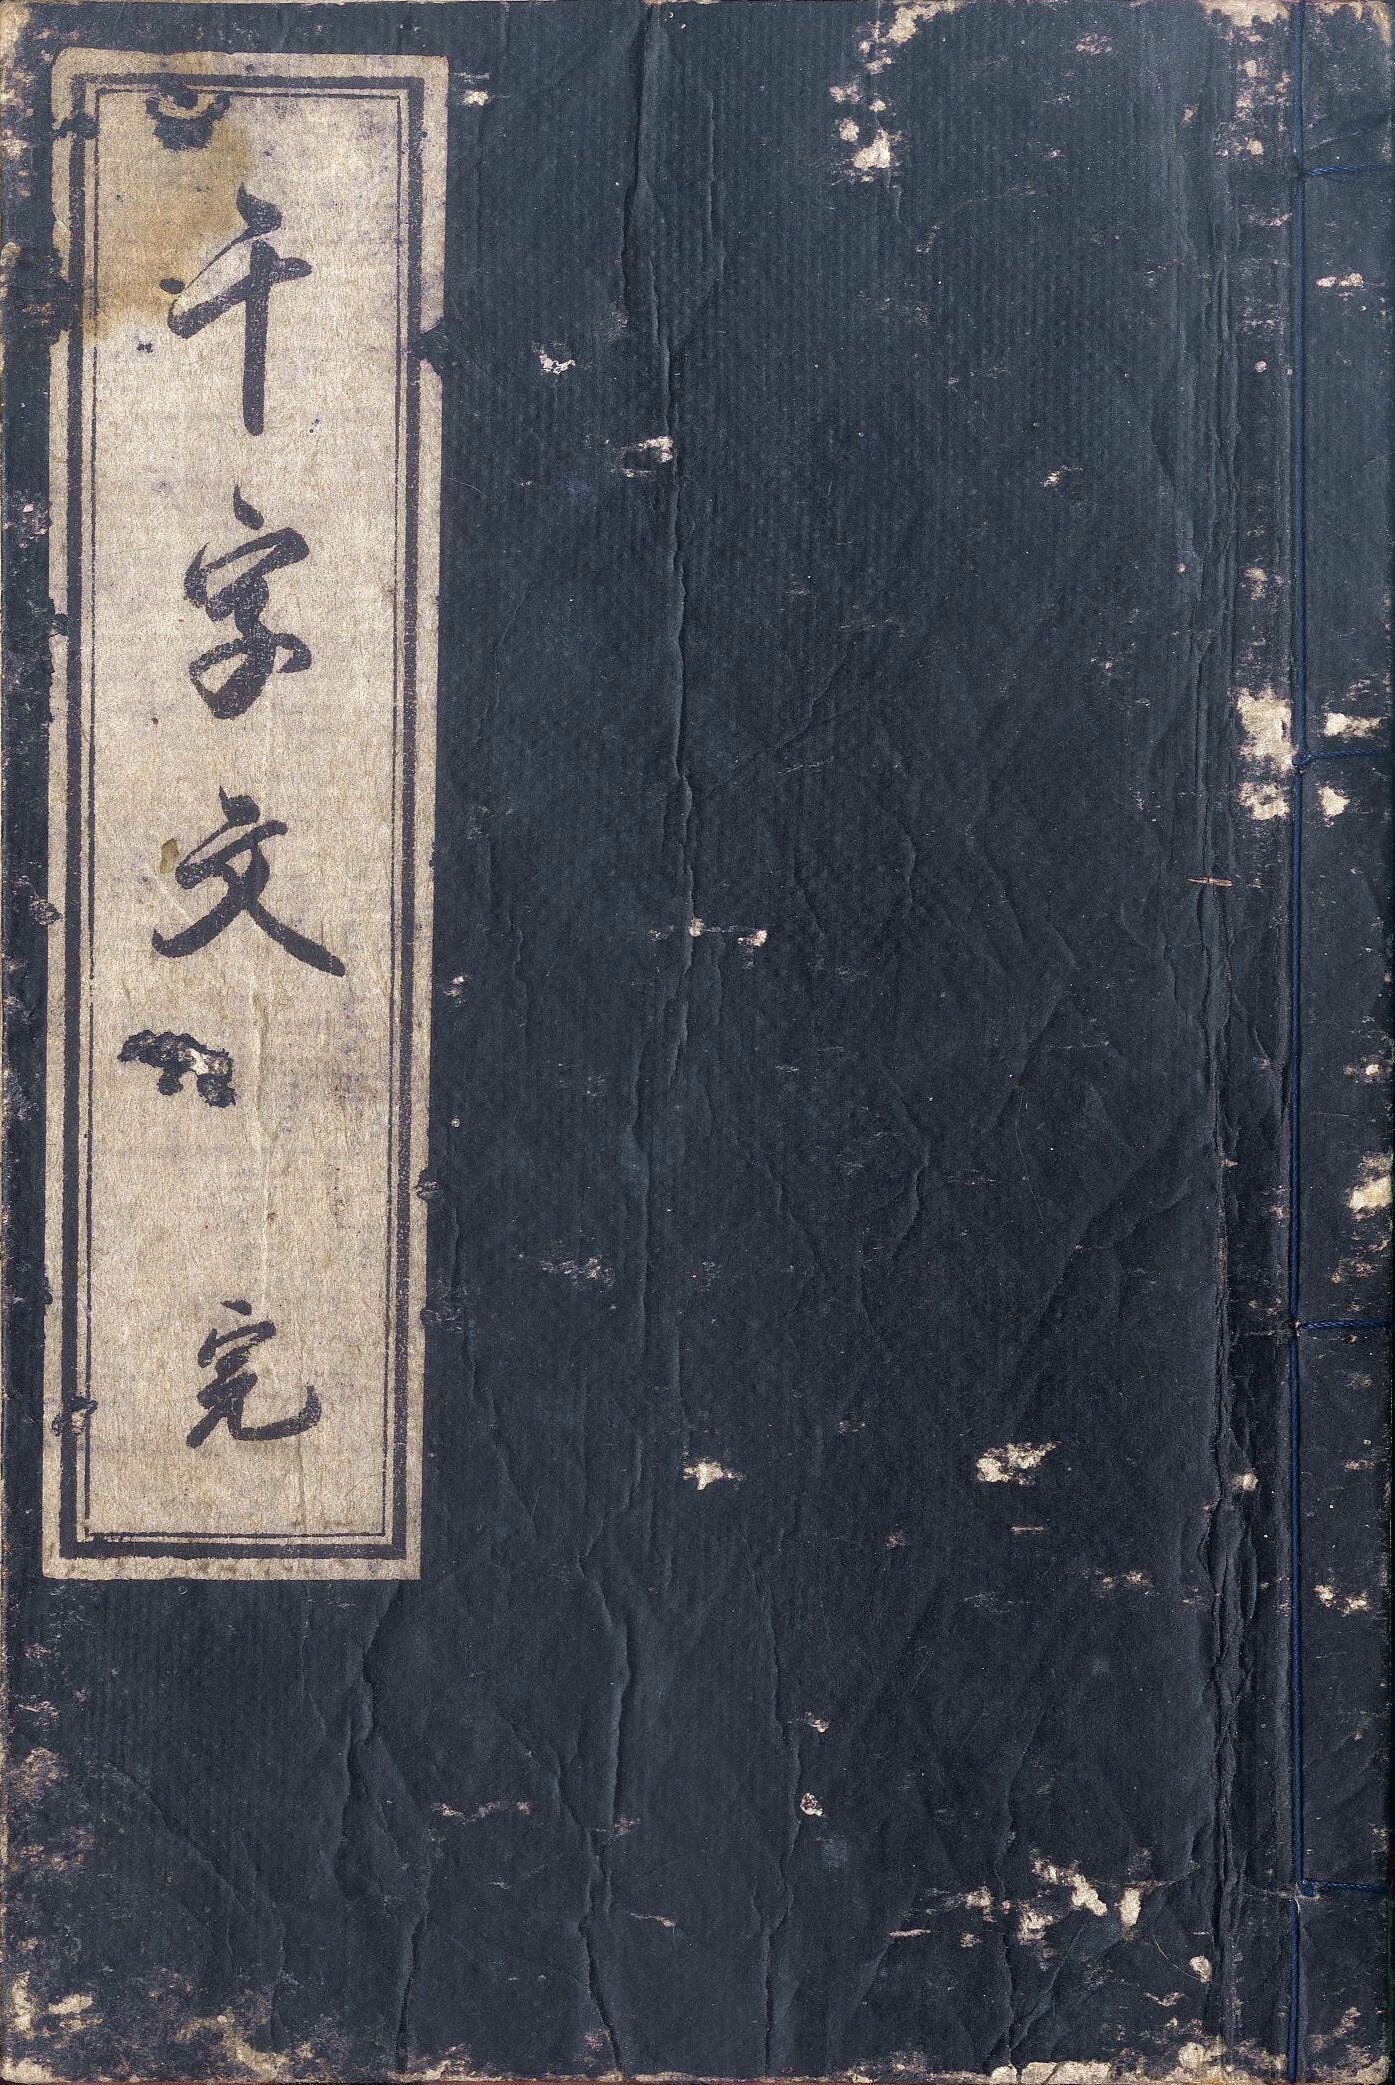 千字文 完